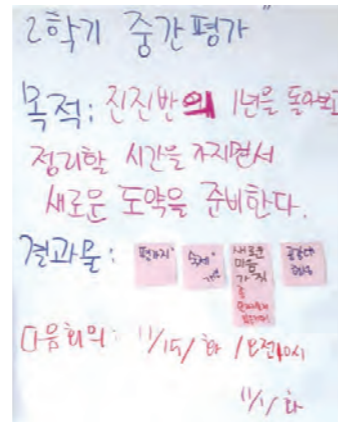 2학기 중간평가
목적: 진진반의 1년을 돌아보고
정리할 시간을 가지면서
새로운 도약을 준비한다.
결과물: 평가지 숙제 새로운 마음 가짐
다음회의: 11/15/화 /오전10시
11/1/화